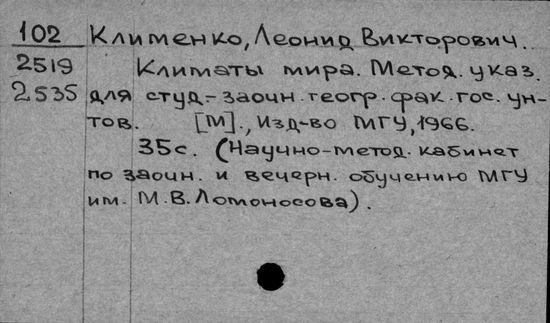 102 Клименко, Леонид Викторович.
2519 Климаты мира. Метод. указ.
2535 для студ.-заочн. геогр. фак. гос. ун-
тов. [М]., Изд-во МГУ, 1966.
35с. (Научно-метод. кабинет
по заочн. и вечерн. обучению МГУ
им. М.В.Ломоносова).